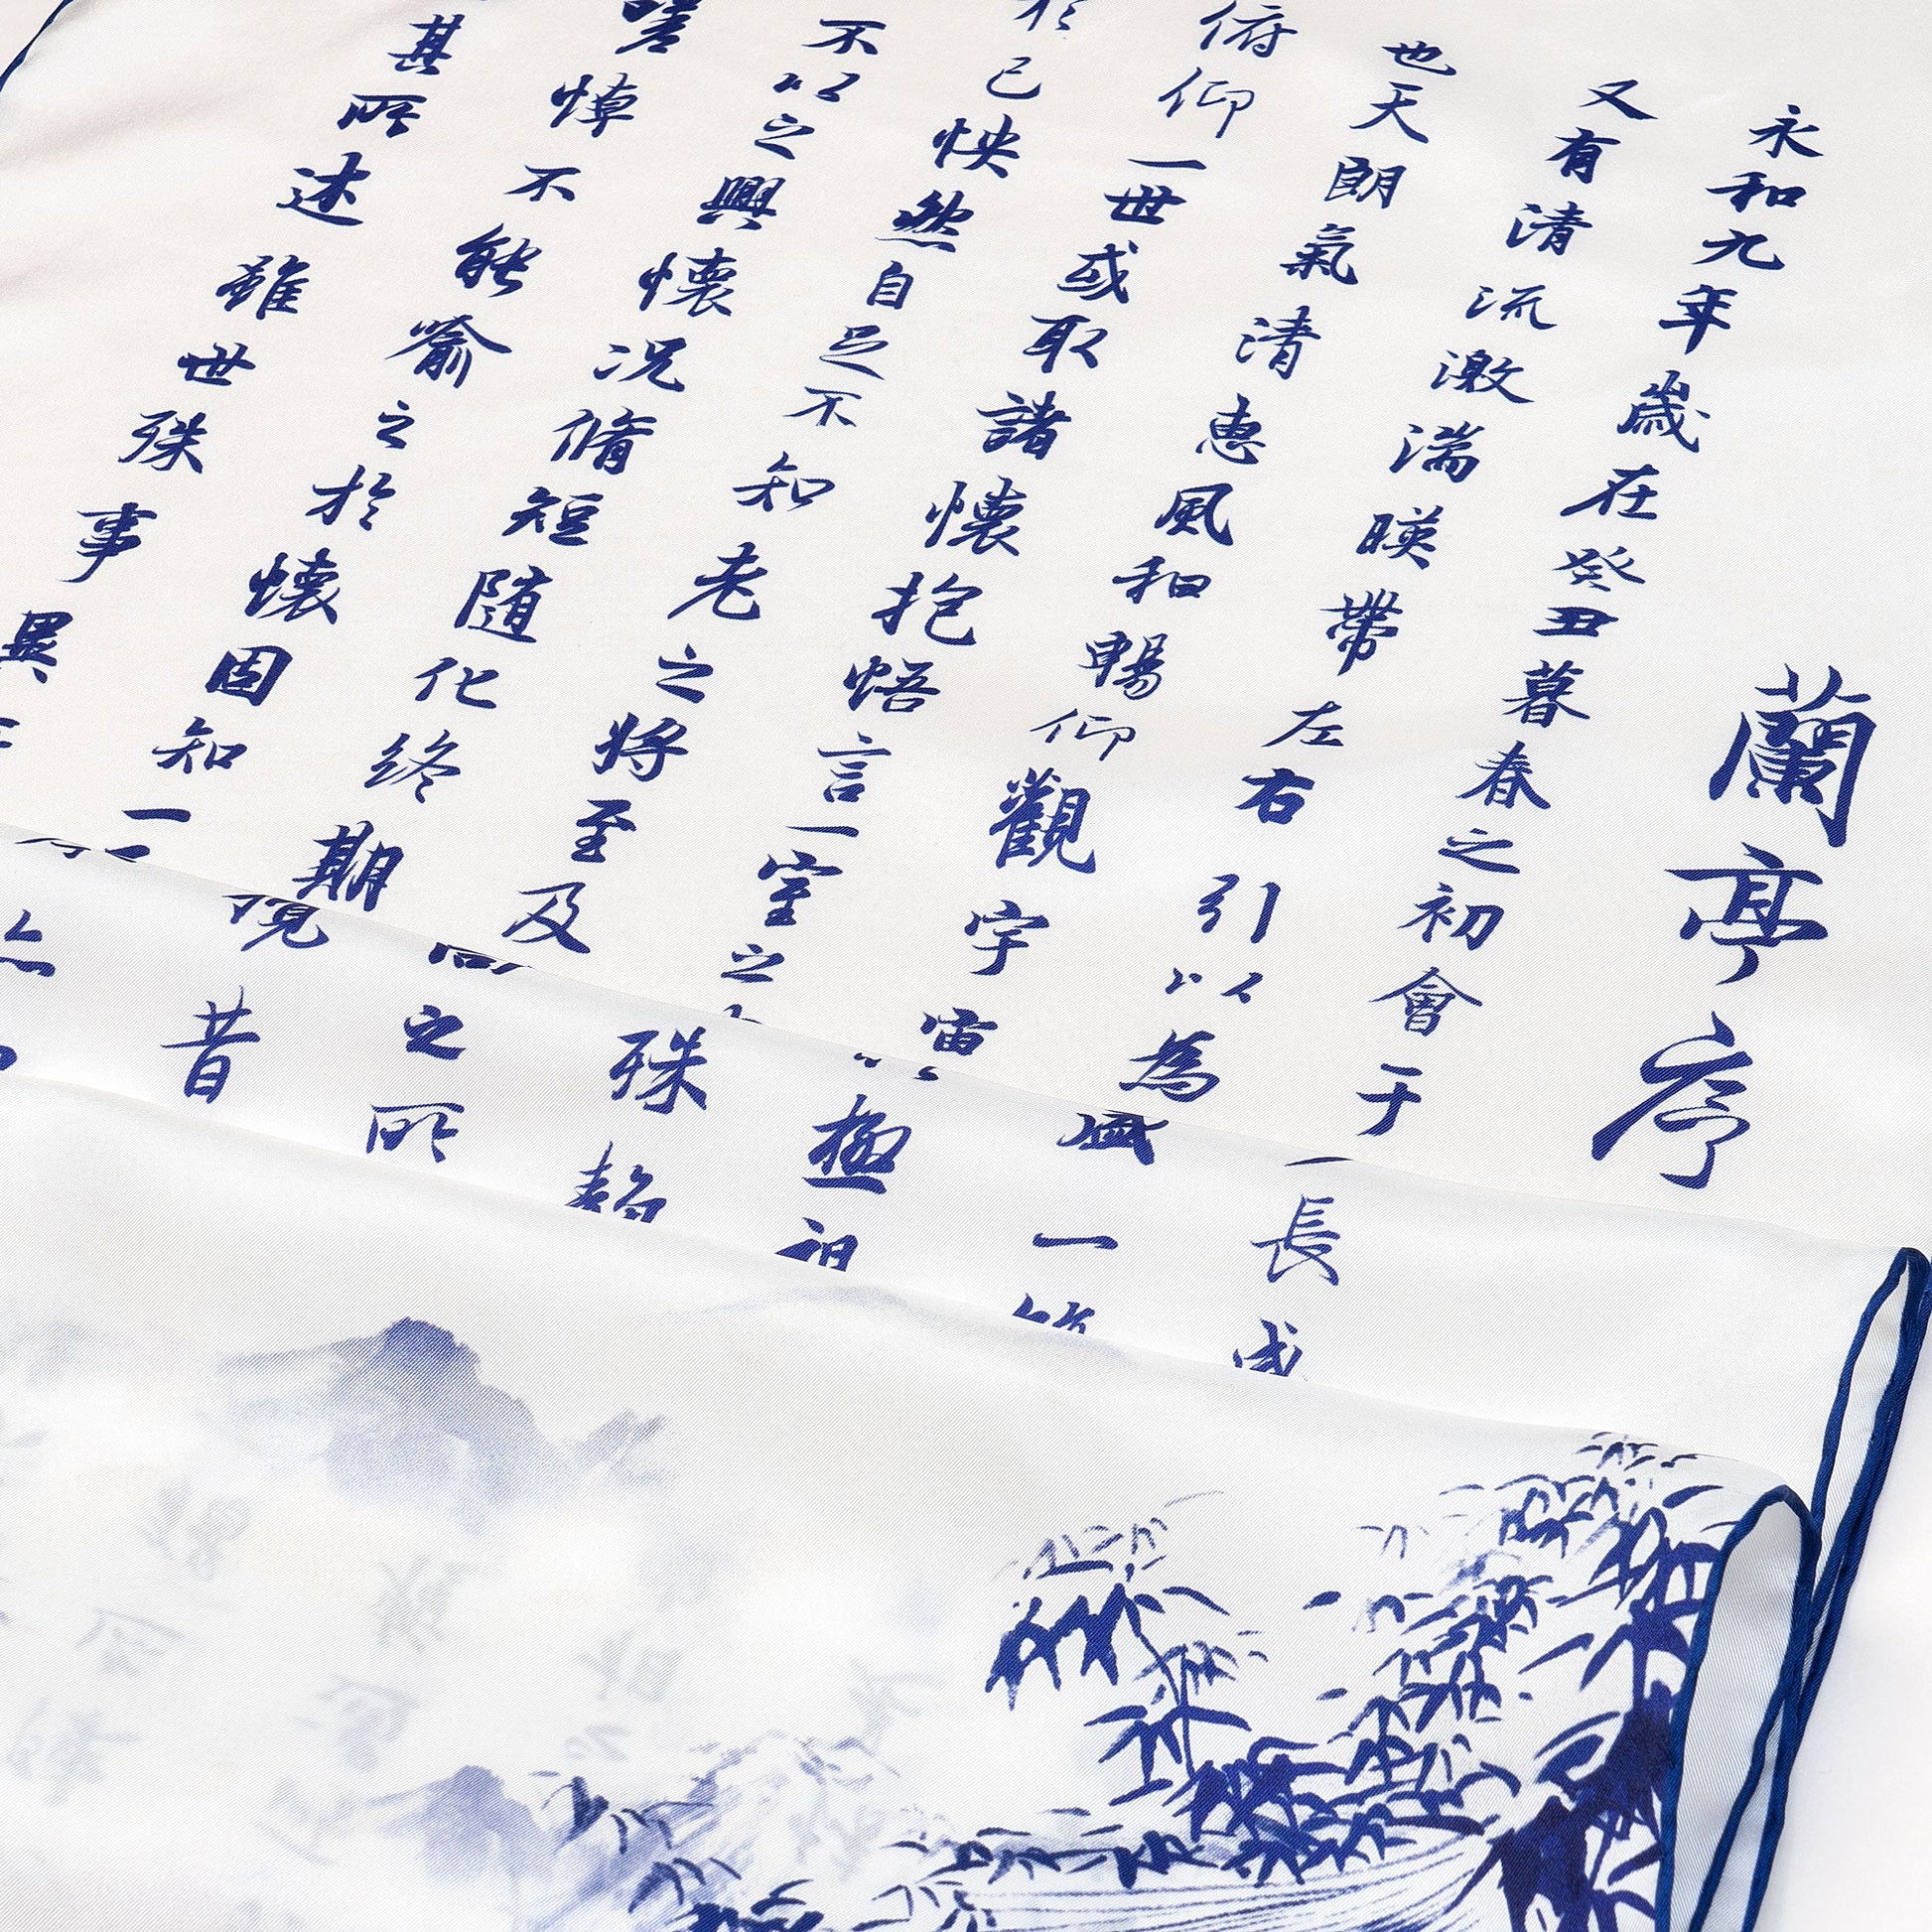 蘭亭序
永和九年歲在癸丑暮春之初會于
長咸
又有清流激湍暎帶左右引以為
盛一
也天朗氣清惠風和暢仰觀宇宙
極
俯仰一世或取諸懷抱悟言一室之
殊
於己怏然自足不知老之將至及
之所
不以之興懷況脩短隨化終期
昔
嗟悼不能喻之於懷固知一
其所述雖世殊事異